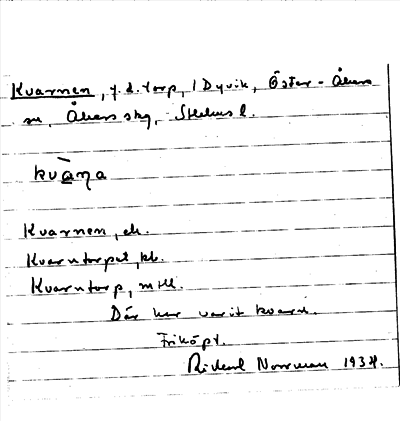 Kvarnen, f.d. torp, 1 Dyvik, Öster-Åkers
sn, Åkers skg, Sthlms l.
kvà̱ṇa
Kvarnen, ek.
Kvarntorpet, kb.
Kvarntorp, mtl.
Där har varit kvarn.
Friköpt.
Rickard Norrman 1934.